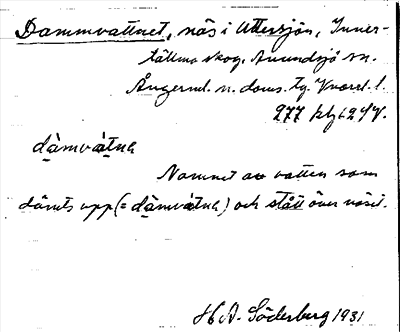 Dammvattnet, näs i Uttersjön, Inner-
tällmo skog. Anundsjö sn.
Ångerml. n. doms. tg.
277
dä̀mvàtnə
Namnet av vatten som
dämts upp (= dä̀mvàtnə) och stått över näset.
H. A. Söderberg 1931